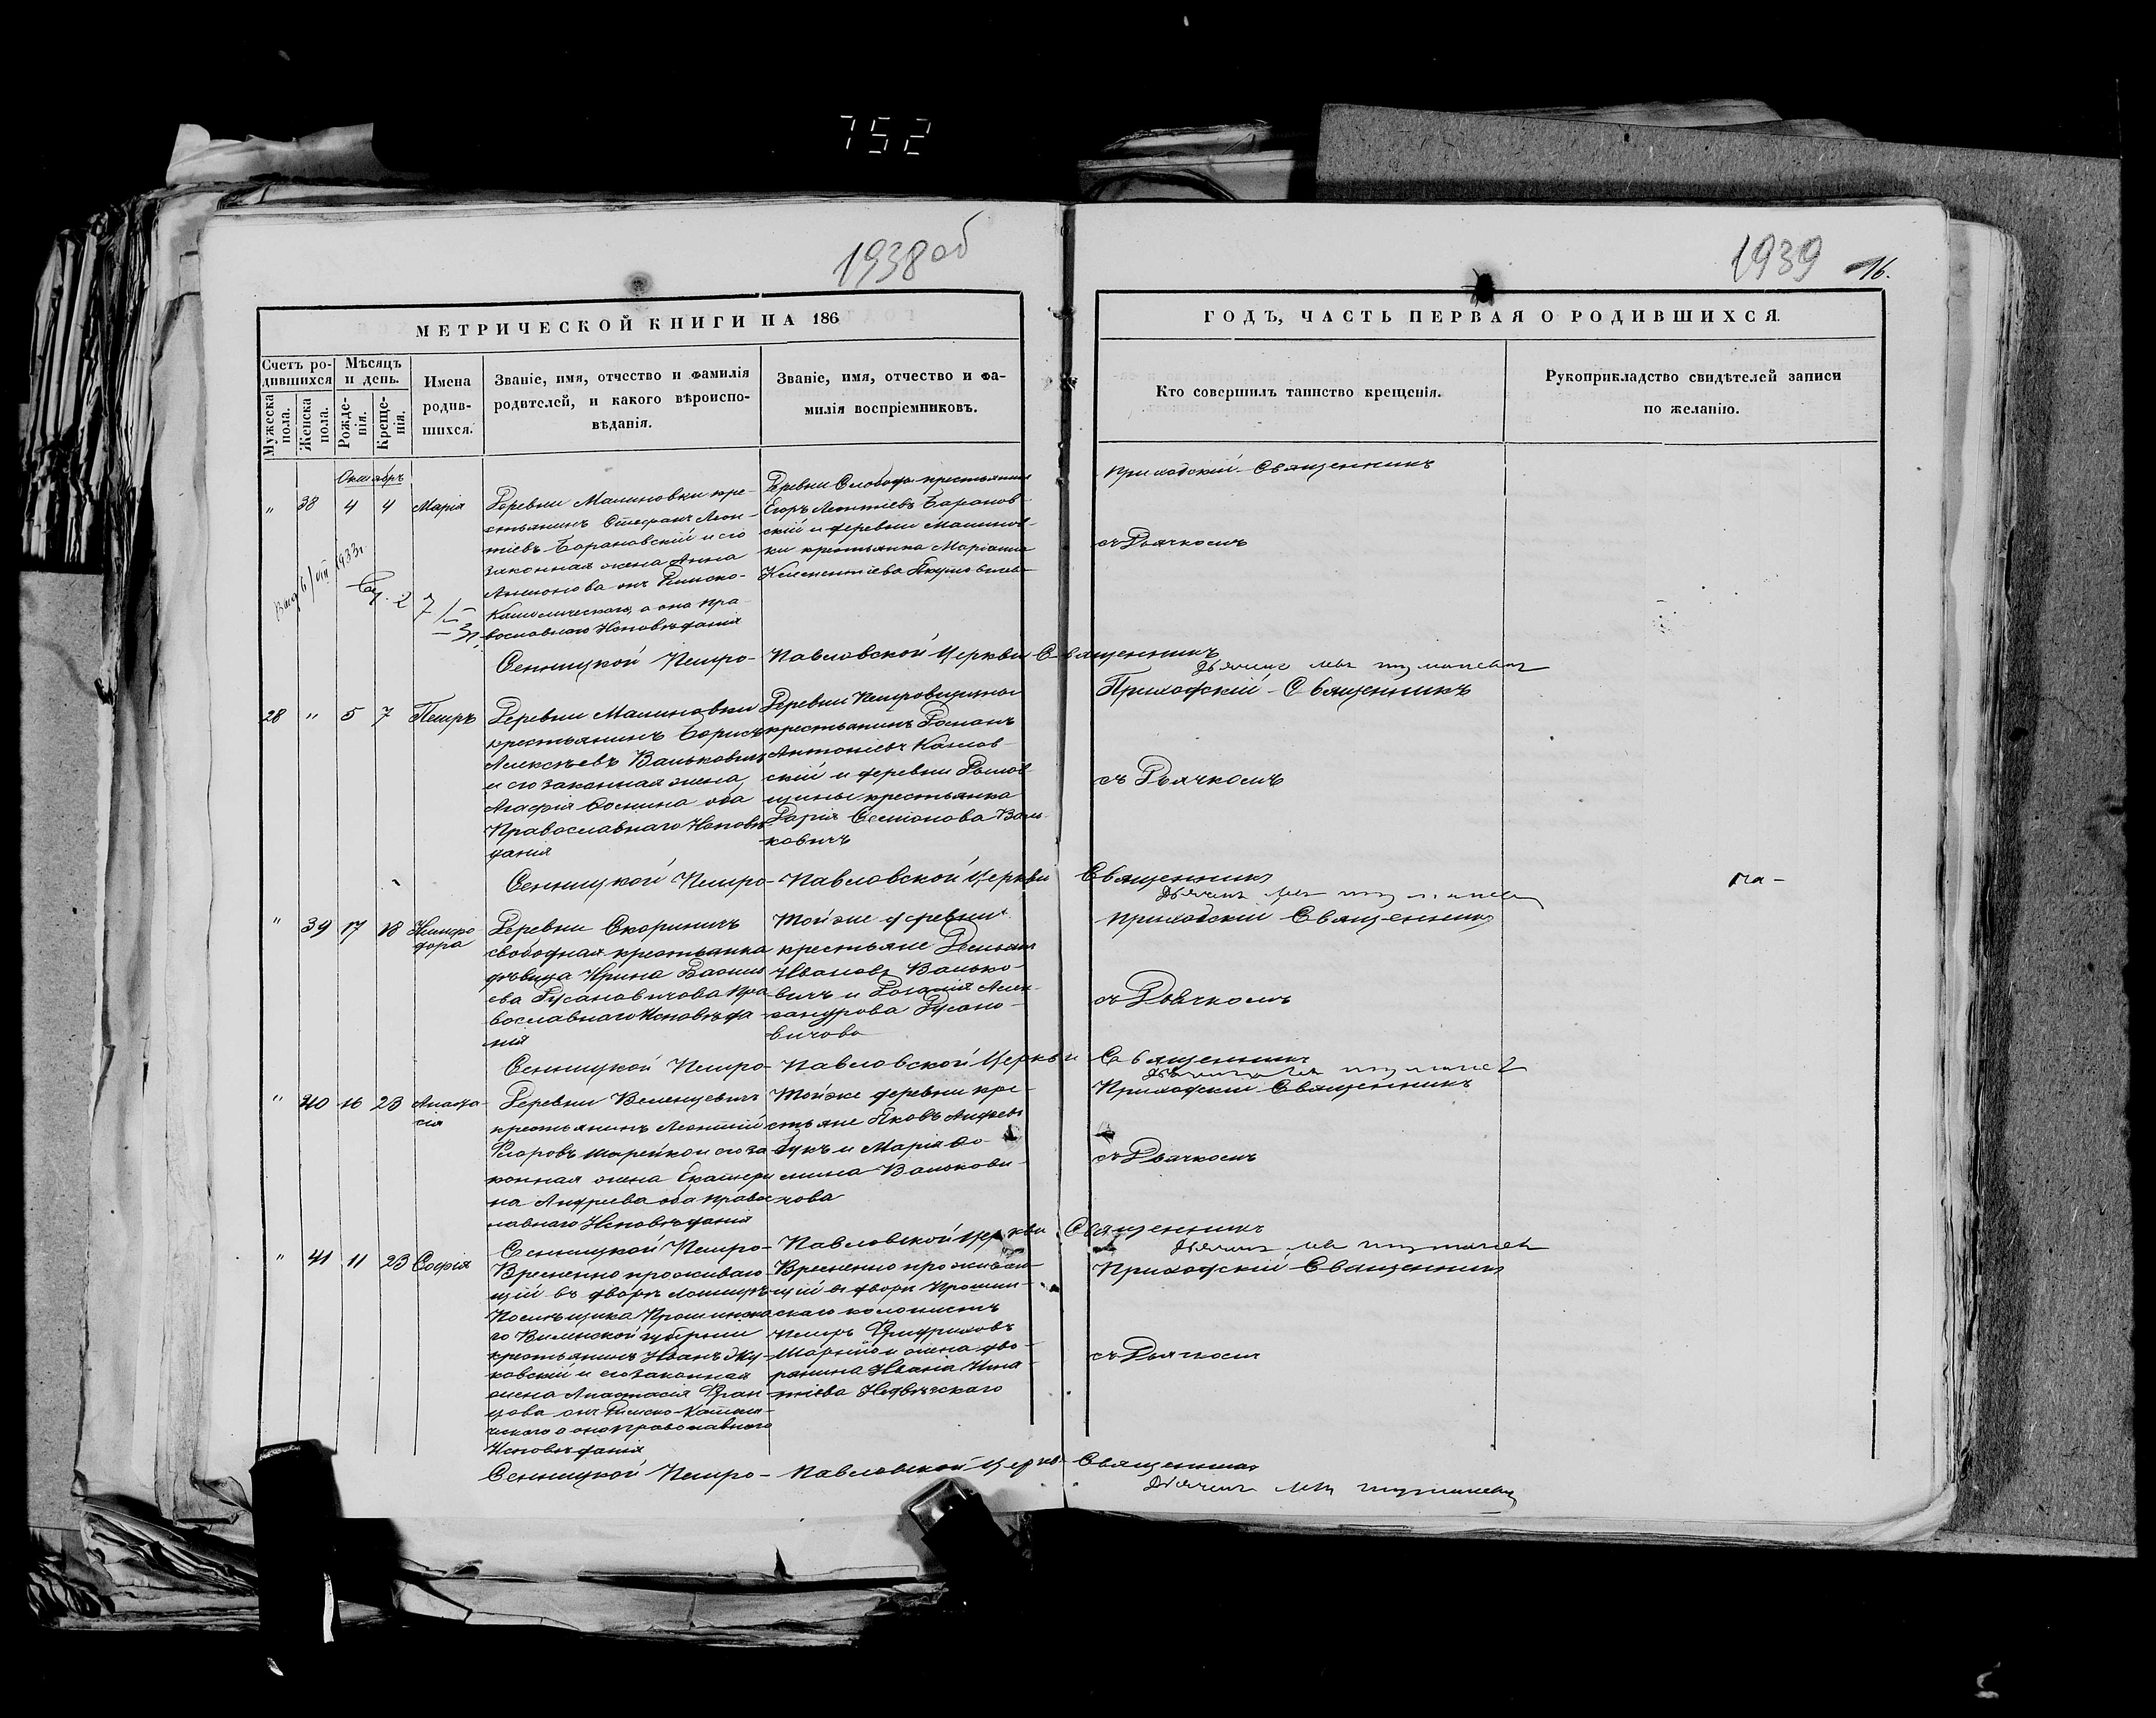 752
1938 об
1939
16.
МЕТРИЧЕСКОЙ КНИГИ НА 186
ГОДЪ, ЧАСТЬ ПЕРВАЯ О РОДИВШИХСЯ.
Счетъ ро-
дившихся
Мужеска пола.
Женска пола.
Мѣсяцъ
и день.
Рожде-
нія.
Креще-
нія.
Имена
родив-
шихся.
Званіе, имя, отчество и фамилія
родителей, и какого вѣроиспо-
вѣданія.
Званіе, имя, отчество и фа-
милія воспріемниковъ.
Кто совершилъ таинство крещенія.
Рукоприкладство свидѣтелей записи
по желанію.
Октябрь
" 38 4 4 Марія
Деревни Малиновки кре-
стьянинъ Стефанъ Леон-
тіевъ Барановскій и его
законная жена Анна
Антонова онъ Римско-
Католическаго, а она пра-
вославнаго Исповѣданія
Деревни Слободы крестьянинъ
Егоръ Леонтіевъ Баранов-
скій и деревни Малинов-
ки крестьянка Маріанна
Приходскій Священникъ
съ Дьячкомъ
1933г.
Сенницкой Петро-Павловской Церкви Священникъ
Дьячекъ
28 " 5 7 Петръ
Деревни Малиновки
крестьянинъ Борисъ
Алексѣевъ Ваньковичъ
и его законная жена
Агафія Фомина оба
Православнаго Исповѣ-
данія
Деревни Петровщины
крестьянинъ Романъ
Антоніевъ Козлов-
скій и деревни
щины крестьянка
Дарія Семіонова Вань-
ковичъ
Приходскій Священникъ
съ Дьячкомъ
Сенницкой Петро-Павловской Церкви Священникъ
Дьячекъ
" 39 17 18 Нимфо-
дора
Деревни Скориничъ
свободная крестьянка
дѣвица Ирина Васил-
ева Русановичова пра-
вославнаго Исповѣда-
нія
Той же деревни
крестьяне Демьянъ
Ивановъ Ванько-
вичъ и Алек-
сандрова Русано-
вичова
Приходскій Священникъ
съ Дьячкомъ
Сенницкой Петро-Павловской Церкви Священникъ
" 40 16 23 Анаста-
сія
Деревни
крестьянинъ Леонтій
Шарейко и его за-
конная жена Екатери-
на Андреева оба Правос-
лавнаго Исповѣданія
Той же деревни кре-
стьяне Яковъ Андреевъ
и Марія Фо-
мина Ванькови-
чова
Приходскій Священникъ
съ Дьячкомъ
Сенницкой Петро-Павловской Церкви Священникъ
Дьячекъ
" 41 11 23 Софія
Временно проживаю-
щій въ дворѣ
Помѣщика Прошинска-
го Виленской губерніи
крестьянинъ Иванъ Жу-
ковскій и его законная
жена Анастасія Фран-
цова онъ Римско-Католи-
ческаго а она православнаго
Исповѣданія
Временно проживаю-
щій въ дворѣ Прошин-
скаго колонистъ
Петръ Фридриховъ
и жена дво-
рянина
Приходскій Священникъ
съ Дьячкомъ
Сенницкой Петро-Павловской Церкви Священникъ
Дьячекъ